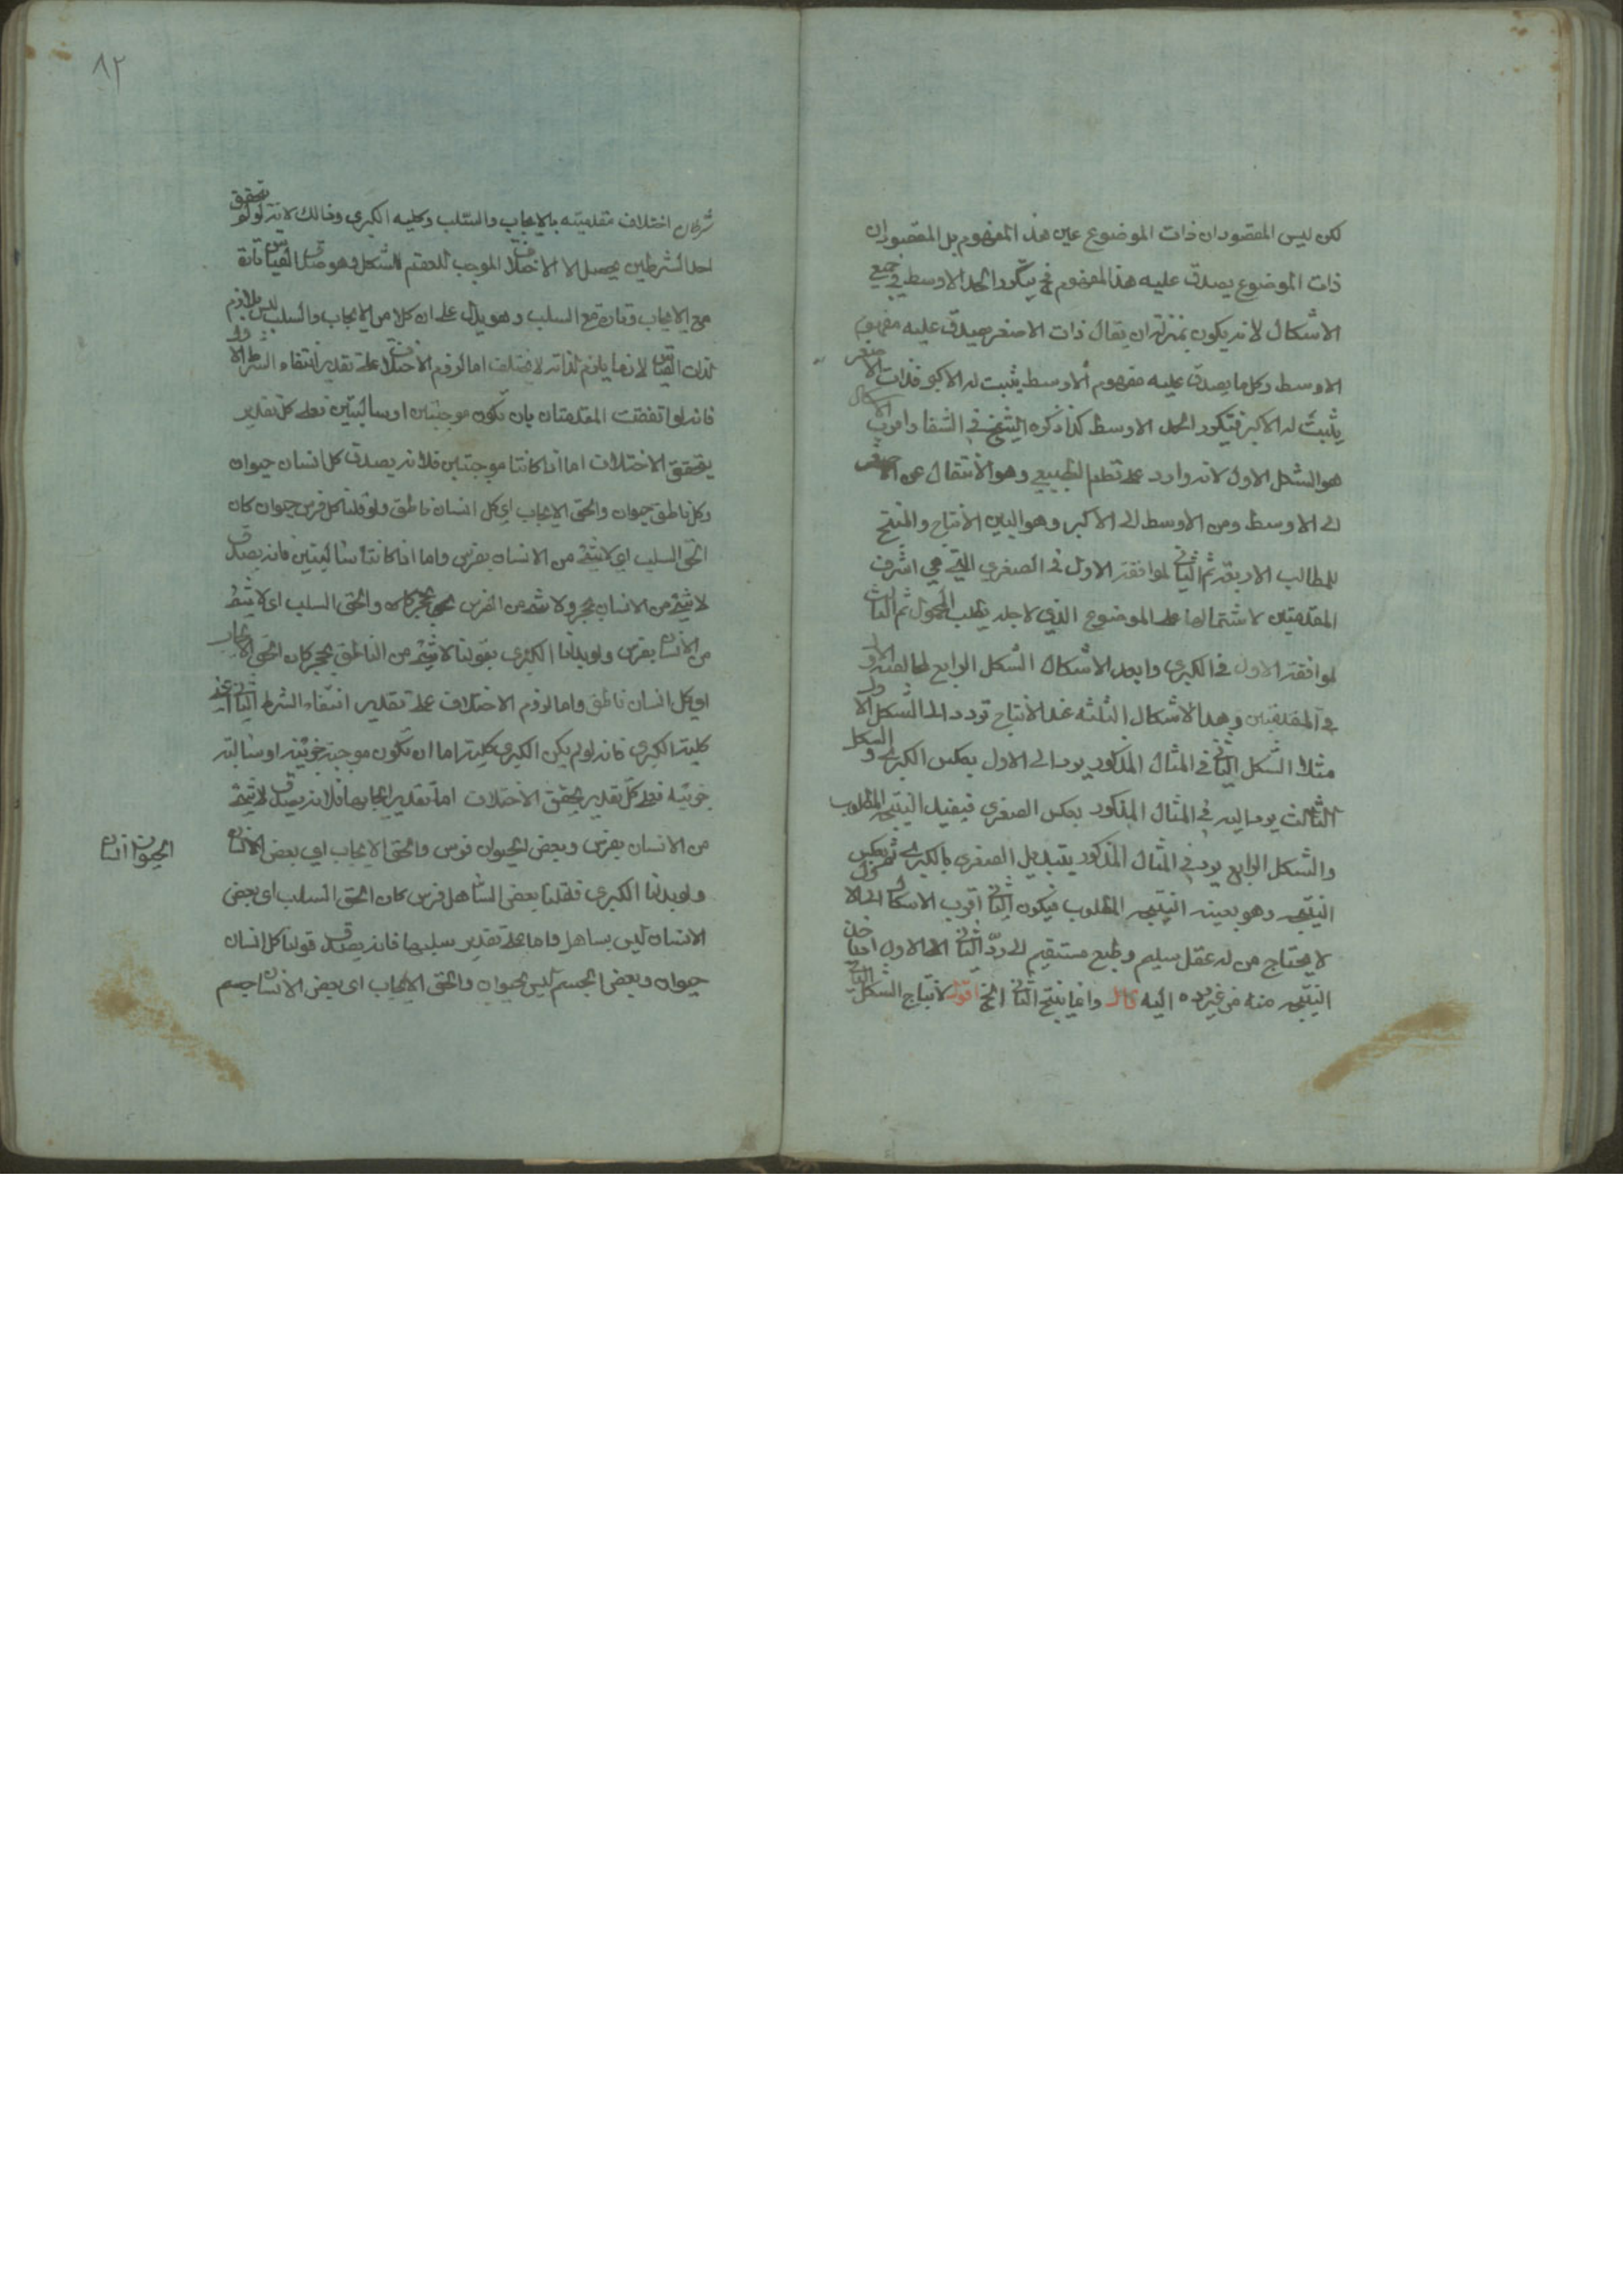 لكن ليس المقصود ان ذات الموضوع عين هذا المفهوم بل المقصود ان
ذات الموضوع يصدق عليه هذا المفهوم فح يتكرر الحد الاوسط في جميع
الاشكال لانه يكون بمنزلة ان يقال ذات الاصغر يصدق عليه مفهوم
الاوسط وكل ما يصدق عليه مفهوم الاوسط يثبت له الاكبر فذات الاصغر
يثبت له الاكبر فيتكرر الحد الاوسط كذا ذكره الشيخ في الشفا واقرب الاشكال
هو الشكل الاول لانه وارد على نظم الطبيعي وهو الانتقال عن الاصغر
الى الاوسط ومن الاوسط الى الاكبر وهو البين الانتاج والمنتج
للمطالب الاربعة ثم الثاني لموافقته الاول في الصغرى التي هي اشرف
المقدمتين لاشتمالها على الموضوع الذي لاجله يطلب المحمول ثم الثالث
لموافقته الاول في الكبرى وابعد الاشكال الشكل الرابع لمخالفته الاول
في المقدمتين وهذا الاشكال الثلثة عند الانتاج تردد الى الشكل الاول
مثلا الشكل الثاني في المثال المذكور يرد الى الاول بعكس الكبرى والشكل
الثالث يرد اليه في المثال المذكور بعكس الصغرى فيفيد النتيجه المطلوب
والشكل الرابع يرد في المثال المذكور بتبديل الصغرى بالكبرى ثم بعكس
النتيجه وهو بعينه النتيجه المطلوب فيكون الثاني اقرب الاشكال الى الاول
لا يحتاج من له عقل سليم وطبع مستقيم الى ردّ الثاني الى الاول اخذ
النتيجه منه من غير رده اليه قال وانما ينتج الثاني الخ اقول لانتاج الشكل الثاني
٨٢
شرطان اختلاف مقدمتيه بالايجاب والسلب وكليه الكبرى وذالك لانه لولو تحقق
احد الشرطين يحصل الا الاختلاف الموجب للعقم الشكل وهو صدق القياس تارة
مع الايجاب وتارة مع السلب وهو يدل على ان كلا من الايجاب والسلب ليس بلازم
لذات القياس لان ما يلزم لذاته لا يختلف اما لزوم الاختلاف على تقدير انتفاء الشرط الاول
فانه لو اتفقت المقدمتان بان تكون موجبتين او سالبتين فعلى كل تقدير
يتحقق الاختلاف اما اذا كانتا موجبتين فلانه يصدق كل انسان حيوان
وكل ناطق حيوان والحق الايجاب اي كل انسان ناطق ولو قلنا كل فرس حيوان كان
الحق السلب اي لا شئ من الانسان بفرس واما اذا كانتا سالبتين فانه يصدق
لا شئ من الانسان بحجر ولا شئ من الفرس بحجر كان والحق السلب اى لا شئ
من الانسان بفرس ولو بدلنا الكبرى بقولنا لا شئ من الناطق بحجر كان الحق الايجاب
اي كل انسان ناطق واما لزوم الاختلاف على تقدير انتفاء الشرط الثاني اعني
كلية الكبرى فانه لو لم يكن الكبرى كلية اما ان تكون موجبة جزئية او سالبة
جزئيه فعلى كل تقدير يتحقق الاختلاف اما تقدير ايجابها فلانه يصدق لا شئ
من الانسان بفرس وبعض الحيوان فرس والحق الايجاب اي بعض الانسان
الحيوان انسان
ولو بدلنا الكبرى فقلنا بعض الساهل فرس كان الحق السلب اى بعض
الانسان ليس بساهل واما على تقدير سلبها فانه يصدق قولنا كل انسان
حيوان وبعض الجسم ليس بحيوان والحق الايجاب اى بعض الانسان جسم